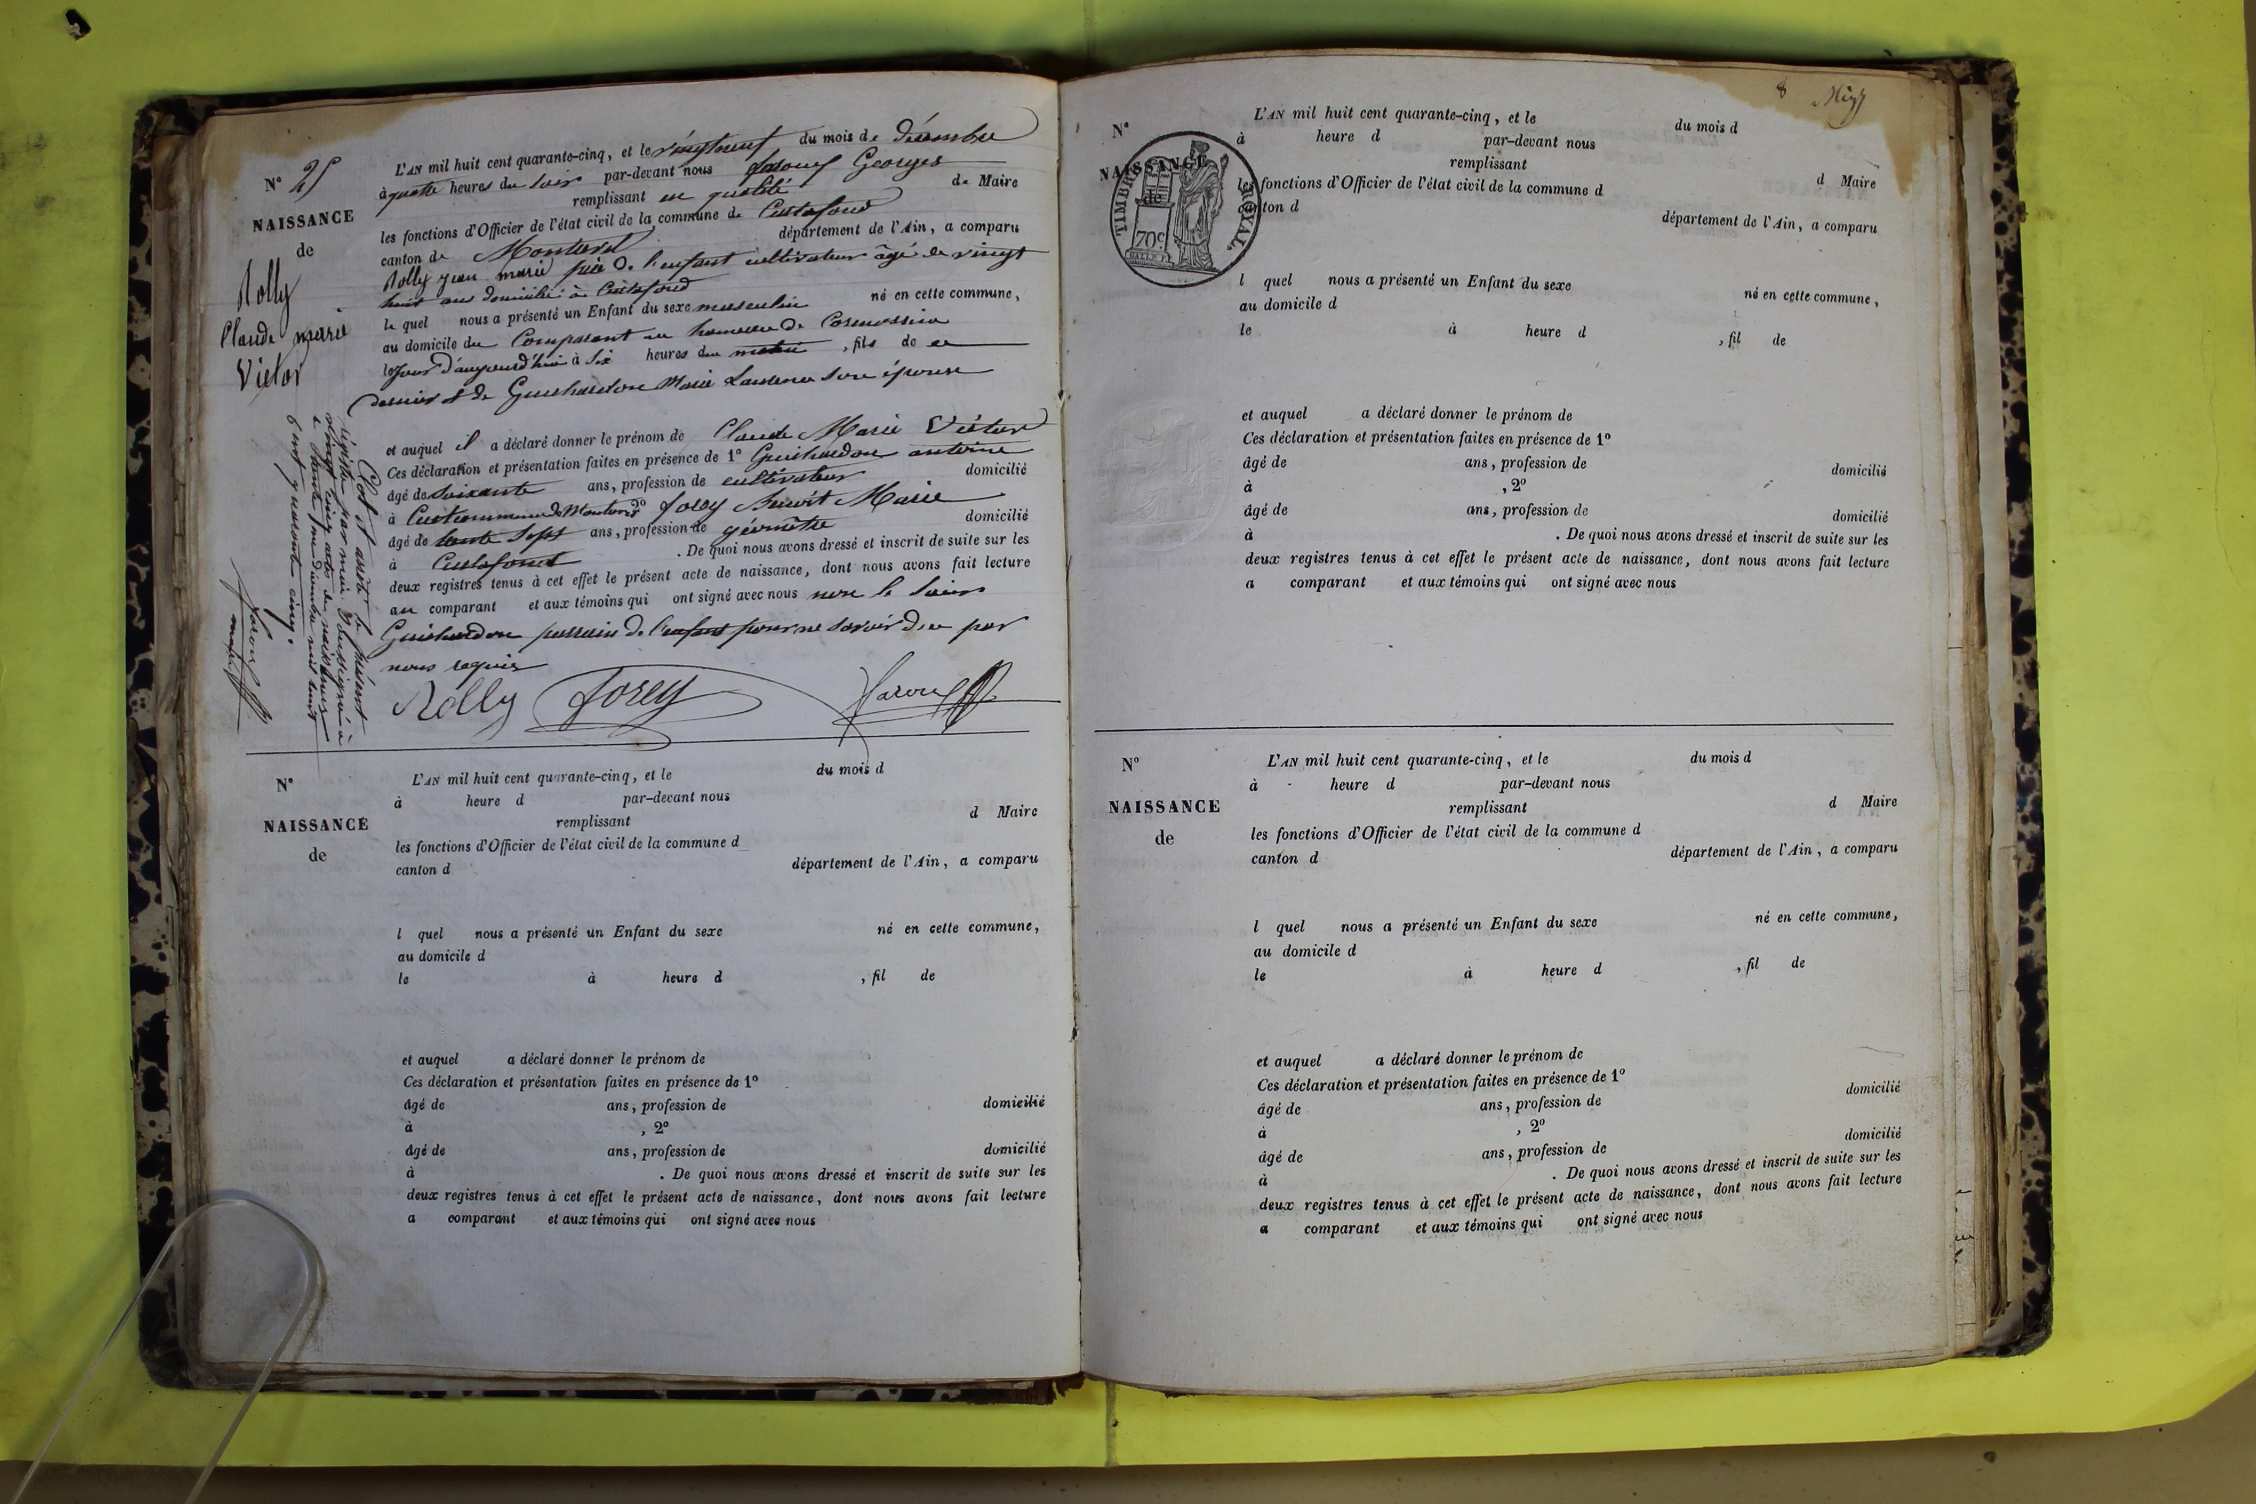 N° 25
NAISSANCE
de
Rolly
Claude marie
Victor
L'AN mil huit cent quarante-cinq, et le vingt neuf du mois de décembre
à quatre heures du soir par-devant nous Georges
remplissant en qualité de Maire
les fonctions d'Officier de l'état civil de la commune de Curtafond
canton de Montrevel département de l'Ain, a comparu
Rolly jean marie père de l'enfant cultivateur âgé de vingt
huit ans domicilié à Curtafond
le quel nous a présenté un Enfant du sexe masculin né en cette commune,
au domicile du Comparant au hameau de
le jour d'aujourd'hui à six heures du matin, fils de ce
dernier et de Guichardon Marie son épouse
et auquel il a déclaré donner le prénom de Claude Marie Victor
Ces déclaration et présentation faites en présence de 1° Guichardon antoine
âgé de soixante ans, profession de cultivateur domicilié
à 2° forey Benoit Marie
âgé de trente sept ans, profession de géomètre domicilié
à Curtafond. De quoi nous avons dressé et inscrit de suite sur les
deux registres tenus à cet effet le présent acte de naissance, dont nous avons fait lecture
au comparant et aux témoins qui ont signé avec nous non le
Guichardon parrain de l'enfant pour ne savoir de par
nous requis
Rolly forey
Clos et arrêté le présent
registre par moi soussigné à
vingt cinq actes de naissances
le trente un décembre mil huit
cent quarante cinq.
N°
NAISSANCE
de
L'AN mil huit cent quarante-cinq, et le du mois d
à heure d par-devant nous
remplissant d Maire
les fonctions d'Officier de l'état civil de la commune d
canton d département de l'Ain, a comparu
l quel nous a présenté un Enfant du sexe né en cette commune,
au domicile d
le à heure d , fil de
et auquel a déclaré donner le prénom de
Ces déclaration et présentation faites en présence de 1°
âgé de ans, profession de domicilié
à , 2°
âgé de ans, profession de domicilié
à . De quoi nous avons dressé et inscrit de suite sur les
deux registres tenus à cet effet le présent acte de naissance, dont nous avons fait lecture
a comparant et aux témoins qui ont signé avec nous
8
N°
NAISSANCE
de
TIMBRE ROYAL
70c
L'AN mil huit cent quarante-cinq, et le du mois d
à heure d par-devant nous
remplissant d Maire
les fonctions d'Officier de l'état civil de la commune d
canton d département de l'Ain, a comparu
l quel nous a présenté un Enfant du sexe né en cette commune,
au domicile d
le à heure d , fil de
et auquel a déclaré donner le prénom de
Ces déclaration et présentation faites en présence de 1°
âgé de ans, profession de domicilié
à , 2°
âgé de ans, profession de domicilié
à . De quoi nous avons dressé et inscrit de suite sur les
deux registres tenus à cet effet le présent acte de naissance, dont nous avons fait lecture
a comparant et aux témoins qui ont signé avec nous
N°
NAISSANCE
de
L'AN mil huit cent quarante-cinq, et le du mois d
à heure d par-devant nous
remplissant d Maire
les fonctions d'Officier de l'état civil de la commune d
canton d département de l'Ain, a comparu
l quel nous a présenté un Enfant du sexe né en cette commune,
au domicile d
le à heure d , fil de
et auquel a déclaré donner le prénom de
Ces déclaration et présentation faites en présence de 1°
âgé de ans, profession de domicilié
à , 2°
âgé de ans, profession de domicilié
à . De quoi nous avons dressé et inscrit de suite sur les
deux registres tenus à cet effet le présent acte de naissance, dont nous avons fait lecture
a comparant et aux témoins qui ont signé avec nous